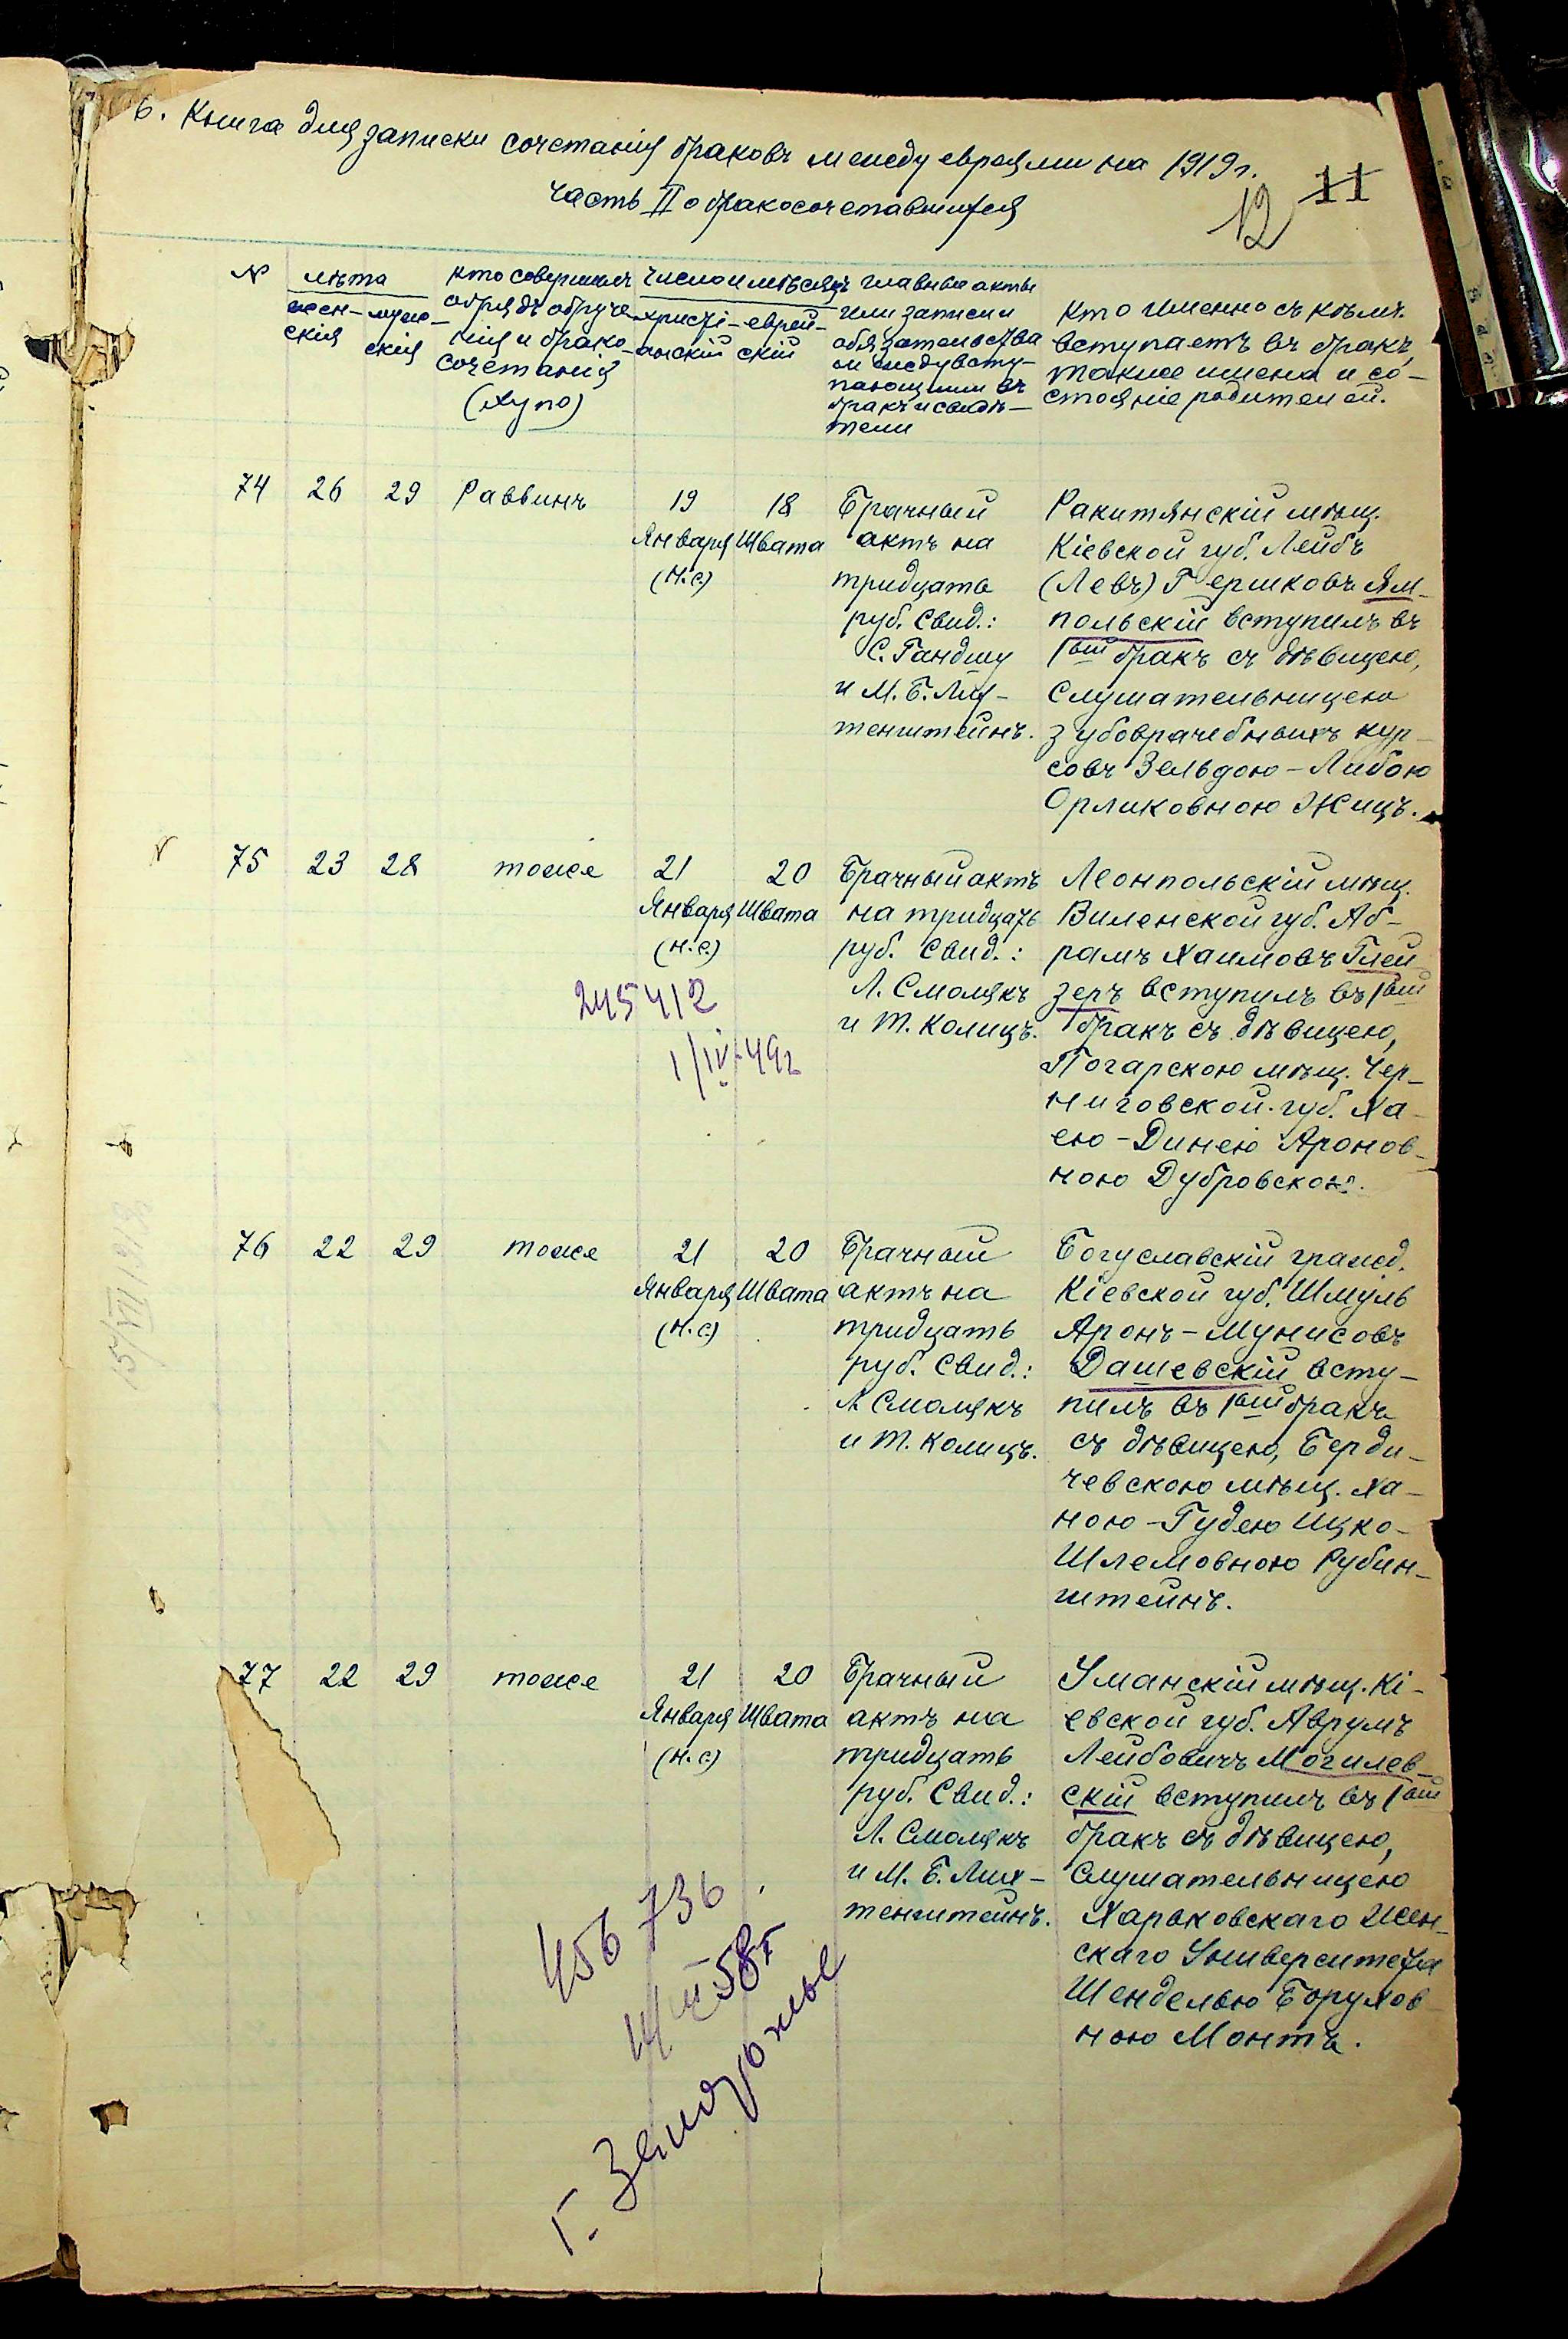 6. Книга для записки сочетанія браковъ между евреями на 1919 г.
часть II о бракосочетавшихся
12 11
№
лѣта
жен-
скія
муж-
скія
кто совершалъ
обрядъ обруче-
нія и брако-
сочетанія
(Хупо)
число и мѣсяцъ
христі-
анскій
еврей-
скій
главные акты
или записи и
обязательства
между всту-
пающими въ
бракъ и свидѣ-
тели
кто именно съ кѣмъ
вступаетъ въ бракъ,
также имена и со-
стояніе родителей.
74 26 29 Раввинъ
19
Января
(н.с.)
18
Швата
Брачный
актъ на
тридцать
руб. Свид.:
С. Гандшу
и М. Б. Лих-
тенштейнъ.
Ракитянскій мѣщ.
Кіевской губ. Лейбъ
(Левъ) Гершковъ Ям-
польскій вступилъ въ
1вый бракъ съ дѣвицею,
слушательницею
зубоврачебныхъ кур-
совъ Зельдою-Либою
Орликовною Жицъ.
75 23 28 тоже
21
Января
(н.с.)
20
Швата
Брачный актъ
на тридцать
руб. Свид.:
Л. Смолякъ
и Т. Колицъ.
Леонпольскій мѣщ.
Виленской губ. Аб-
рамъ Хаимовъ Глей
зеръ вступилъ въ 1вый
бракъ съ дѣвицею,
Погарскою мѣщ. Чер-
ниговской губ. Ха-
ею-Динею Аронов-
ною Дубровскою.
245412
1/IV-49г
76 22 29 тоже
21
Января
(н.с.)
20
Швата
Брачный
актъ на
тридцать
руб. Свид.:
Л Смолякъ
и Т. Колицъ.
Богуславскій гражд.
Кіевской губ. Шмуль
Аронъ-Мунисовъ
Дашевскій всту-
пилъ въ 1вый бракъ
съ дѣвицею, Берди-
чевскою мѣщ. Ха-
ною-Гудею Ицко-
Шлемовною Рубин-
штейнъ.
15/VII
77 22 29 тоже
21
Января
(н.с.)
20
Швата
Брачный
актъ на
тридцать
руб. Свид.:
Л. Смолякъ
и М. Б. Лих-
тенштейнъ.
Уманскій мѣщ. Кі-
евской губ. Аврумъ
Лейбовичъ Могилев-
скій вступилъ въ 1вый
бракъ съ дѣвицею,
слушательницею
Харьковскаго Жен-
скаго Университета
Шенделью Борухов-
ною Монтъ.
456 736
г. Запорожье